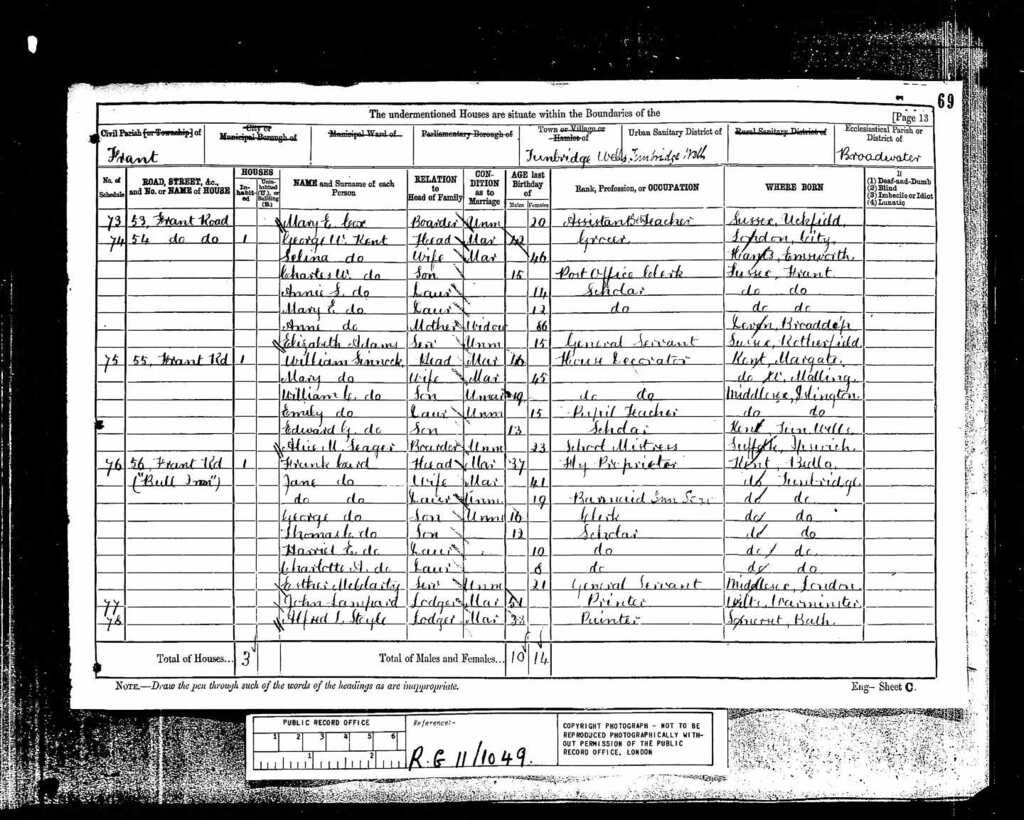 69
The undermentioned Houses are situate within the Boundaries of the
[Page 13
Civil Parish [or Township] of
City or Municipal Borough of
Municipal Ward of
Parliamentary Borough of
Town or Village or Hamlet of
Urban Sanitary District of
Rural Sanitary District of
Ecclesiastical Parish or District of
Frant
Tunbridge Wells Tunbridge Wells
Broadwater
No. of Schedule
ROAD, STREET, &c., and No. or NAME of HOUSE
HOUSES
Inhabited
Uninhabited (U.), or Building (B.)
NAME and Surname of each Person
RELATION to Head of Family
CONDITION as to Marriage
AGE last Birthday of
Males
Females
Rank, Profession, or OCCUPATION
WHERE BORN
If
(1) Deaf-and-Dumb
(2) Blind
(3) Imbecile or Idiot
(4) Lunatic
73 53, Frant Road Mary E. Boarder Unm 20 Assistant Teacher Sussex, Uckfield
74 54 do do 1 George W. Kent Head Mar 42 Grocer London, City
Selina do Wife Mar 46 Hants, Emsworth
Charles W. do Son 15 Post Office Clerk Sussex, Frant
Annie S. do Daur 14 Scholar do do
Mary E. do Daur 12 do do do
Anne do Mother Widow 66 Devon,
Elizabeth Adams Ser Unm 15 General Servant Sussex, Rotherfield
75 55, Frant Rd 1 William Head Mar 46 House Decorator Kent, Margate
Mary do Wife Mar 45 do W. Malling
William C. do Son Unmar 19 do do Middlesex, Islington
Emily do Daur Unm 15 Pupil Teacher do do
Edward G. do Son 13 Scholar Kent, Tun. Wells
Alice M. Seager Boarder Unm 23 School Mistress Suffolk, Ipswich
76 56, Frant Rd 1 Frank Head Mar 37 Fly Proprietor Kent,
("Bull Inn") Jane do Wife Mar 41 do Tunbridge
do do Daur Unm 19 Barmaid Inn do do
George do Son Unm 16 Clerk do do
Thomas do Son 12 Scholar do do
Harriet E. do Daur 10 do do do
Charlotte A. do Daur 8 do do do
Esther Ser Unm 21 General Servant Middlesex, London
77 John Lampard Lodger Mar 51 Printer Wilts, Warminster
78 Alfred Lodger Mar 33 Somerset, Bath
Total of Houses... 3
Total of Males and Females... 10 14
NOTE.—Draw the pen through such of the words of the headings as are inappropriate.
Eng— Sheet C.
PUBLIC RECORD OFFICE
1 2 3 4 5 6
1 2
Reference:-
R.G 11/1049.
COPYRIGHT PHOTOGRAPH - NOT TO BE
REPRODUCED PHOTOGRAPHICALLY WITH-
OUT PERMISSION OF THE PUBLIC
RECORD OFFICE, LONDON